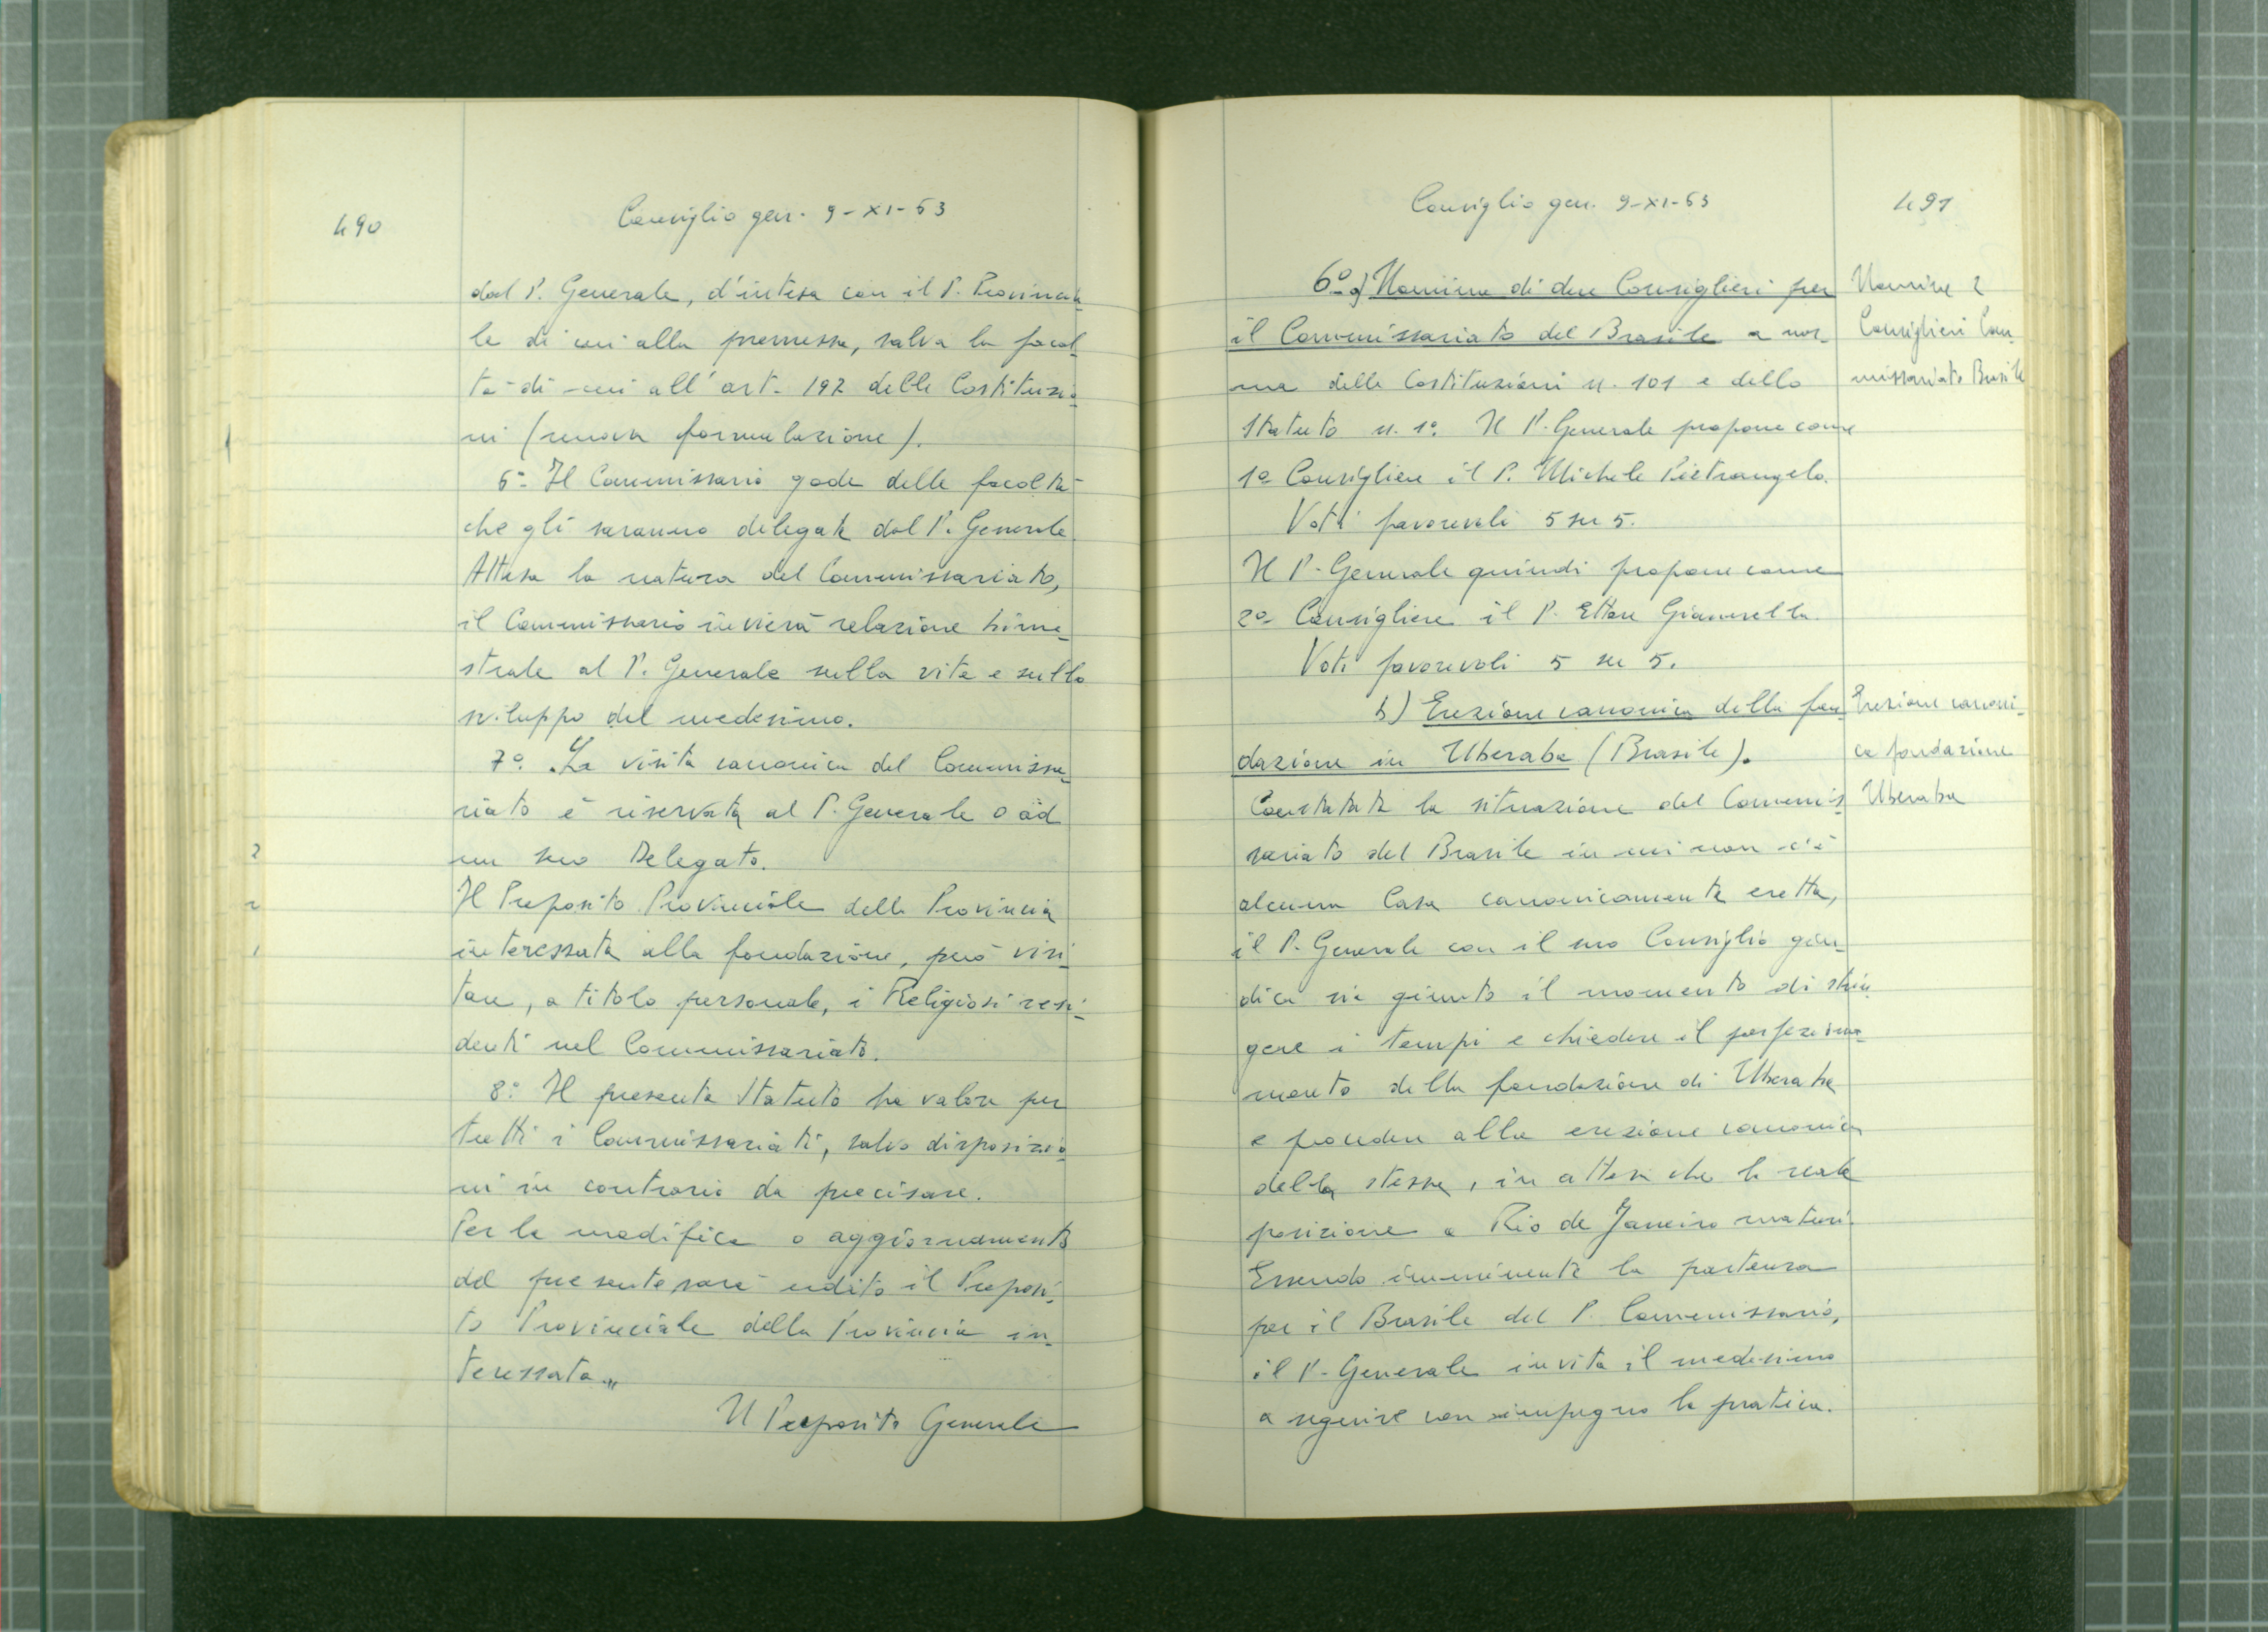 490
Consiglio gen. 9-XI-63
dal P. Generale, d'intesa con il P. Provincia-
le di cui alla premessa, salva la facol-
tà di cui all'art. 192 delle Costituzio-
ni (nuova formulazione).
6° Il Commissario gode delle facoltà
che gli saranno delegate dal P. Generale.
Attesa la natura del Commissariato,
il Commissario invierà relazione trime-
strale al P. Generale sulla vita e sullo
sviluppo del medesimo.
7° La visita canonica del Commissa-
riato è riservata al P. Generale o ad
un suo Delegato.
Il Preposito Provinciale della Provincia
interessata alla fondazione, può visi-
tare, a titolo personale, i Religiosi resi-
denti nel Commissariato.
8° Il presente Statuto ha valore per
tutti i Commissariati, salvo disposizio-
ni in contrario da precisare.
Per la modifica o aggiornamento
del presente sarà udito il Preposi-
to Provinciale della Provincia in-
teressata„
Il Preposito Generale
2
2
1
Consiglio gen. 9-XI-63
491
6° a) Nomina di due Consiglieri per
il Commissariato del Brasile a nor-
ma delle Costituzioni n. 101 e dello
Statuto n. 1° Il P. Generale propone come
1° Consigliere il P. Michele Pietrangelo.
Voti favorevoli 5 su 5.
Il P. Generale quindi propone come
2° Consigliere il P. Ettore Giannella.
Voti favorevoli 5 su 5.
b) Erezione canonica della fon-
dazione in Uberaba (Brasile).
Constatata la situazione del Commis-
sariato del Brasile in cui non c'è
alcuna Casa canonicamente eretta,
il P. Generale con il suo Consiglio giu-
dica sia giunto il momento di strin-
gere i tempi e chiedere il perfeziona-
mento della fondazione di Uberaba
e procedere alla erezione canonica
della stessa, in attesa che la reale
posizione a Rio de Janeiro maturi.
Essendo imminente la partenza
per il Brasile del P. Commissario,
il P. Generale invita il medesimo
a seguire con impegno la pratica.
Nomine 2
Consiglieri Com-
missariato Brasile
Erezione canoni-
ca fondazione
Uberaba